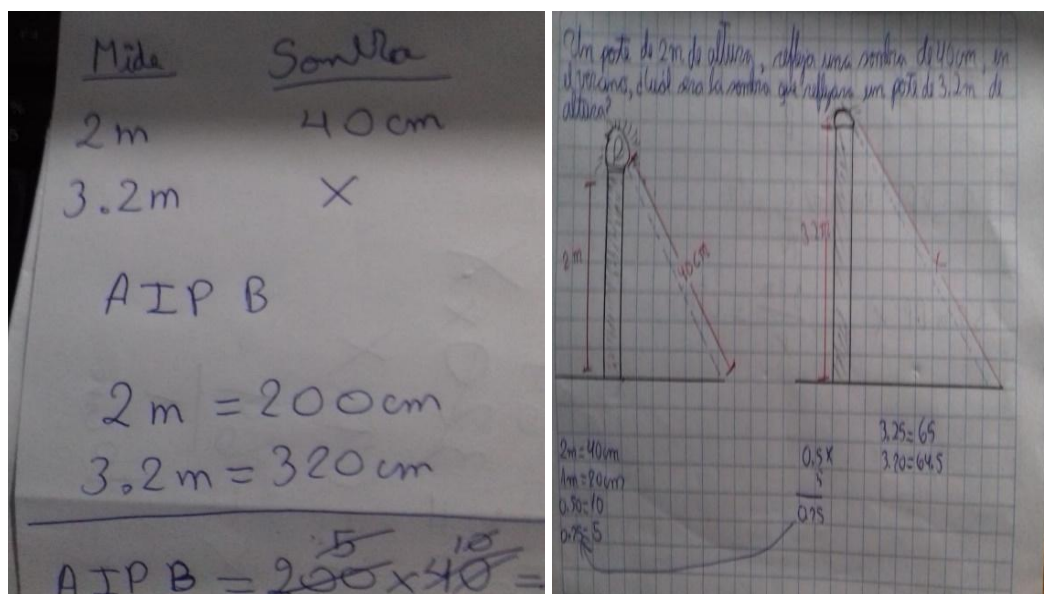 Mide Sombra
2m 40cm
3.2m X
AIP B
2m = 200cm
3.2m = 320cm
5 10
AIP B = 200 x 40 =
Un poste de 2m de altura, refleja una sombra de 40cm, en
el verano, ¿cuál sera la sombra que reflejara un poste de 3.2m de
altura?
2m
40cm
3.2m
x
2m=40cm
1m=20cm
0.50=10
0.25=5
0.5x
5
0.25
3.25=65
3.20=64.5